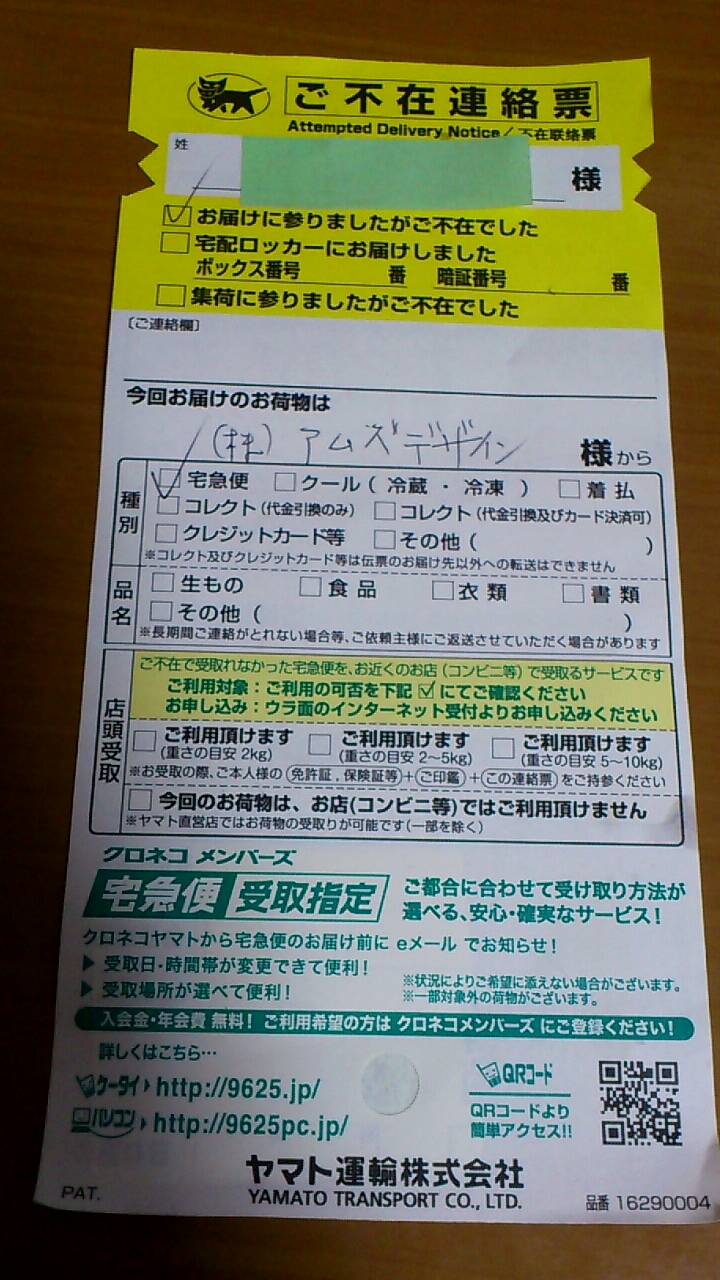 ご不在連絡票
Attempted Delivery Notice／不在联络票
姓
様
お届けに参りましたがご不在でした
宅配ロッカーにお届けしました
ボックス番号 番 暗証番号 番
集荷に参りましたがご不在でした
〔ご連絡欄〕
今回お届けのお荷物は
(株) アムズデザイン 様から
種別
宅急便 クール（冷蔵・冷凍） 着払
コレクト（代金引換のみ） コレクト（代金引換及びカード決済可）
クレジットカード等 その他（ ）
※コレクト及びクレジットカード等は伝票のお届け先以外への転送はできません
品名
生もの 食品 衣類 書類
その他（ ）
※長期間ご連絡がとれない場合等、ご依頼主様にご返送させていただく場合があります
店頭受取
ご不在で受取れなかった宅急便を、お近くのお店（コンビニ等）で受取るサービスです
ご利用対象：ご利用の可否を下記☑にてご確認ください
お申し込み：ウラ面のインターネット受付よりお申し込みください
ご利用頂けます ご利用頂けます ご利用頂けます
（重さの目安 2kg） （重さの目安 2〜5kg） （重さの目安 5〜10kg）
※お受取の際、ご本人様の（免許証，保険証等）+（ご印鑑）+（この連絡票）をご持参ください
今回のお荷物は、お店（コンビニ等）ではご利用頂けません
※ヤマト直営店ではお荷物の受取りが可能です（一部を除く）
クロネコ メンバーズ
宅急便 受取指定
ご都合に合わせて受け取り方法が
選べる、安心・確実なサービス！
クロネコヤマトから宅急便のお届け前に eメール でお知らせ！
▶ 受取日・時間帯が変更できて便利！
▶ 受取場所が選べて便利！
※状況によりご希望に添えない場合がございます。
※一部対象外の荷物がございます。
入会金・年会費 無料！ ご利用希望の方は クロネコメンバーズ にご登録ください！
詳しくはこちら…
ケータイ▶ http://9625.jp/
パソコン▶ http://9625pc.jp/
QRコード
QRコードより
簡単アクセス!!
ヤマト運輸株式会社
YAMATO TRANSPORT CO., LTD.
PAT.
品番 16290004